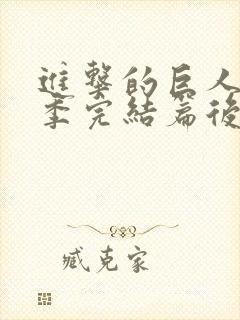 進擊的巨人
季完結篇後
臧克家